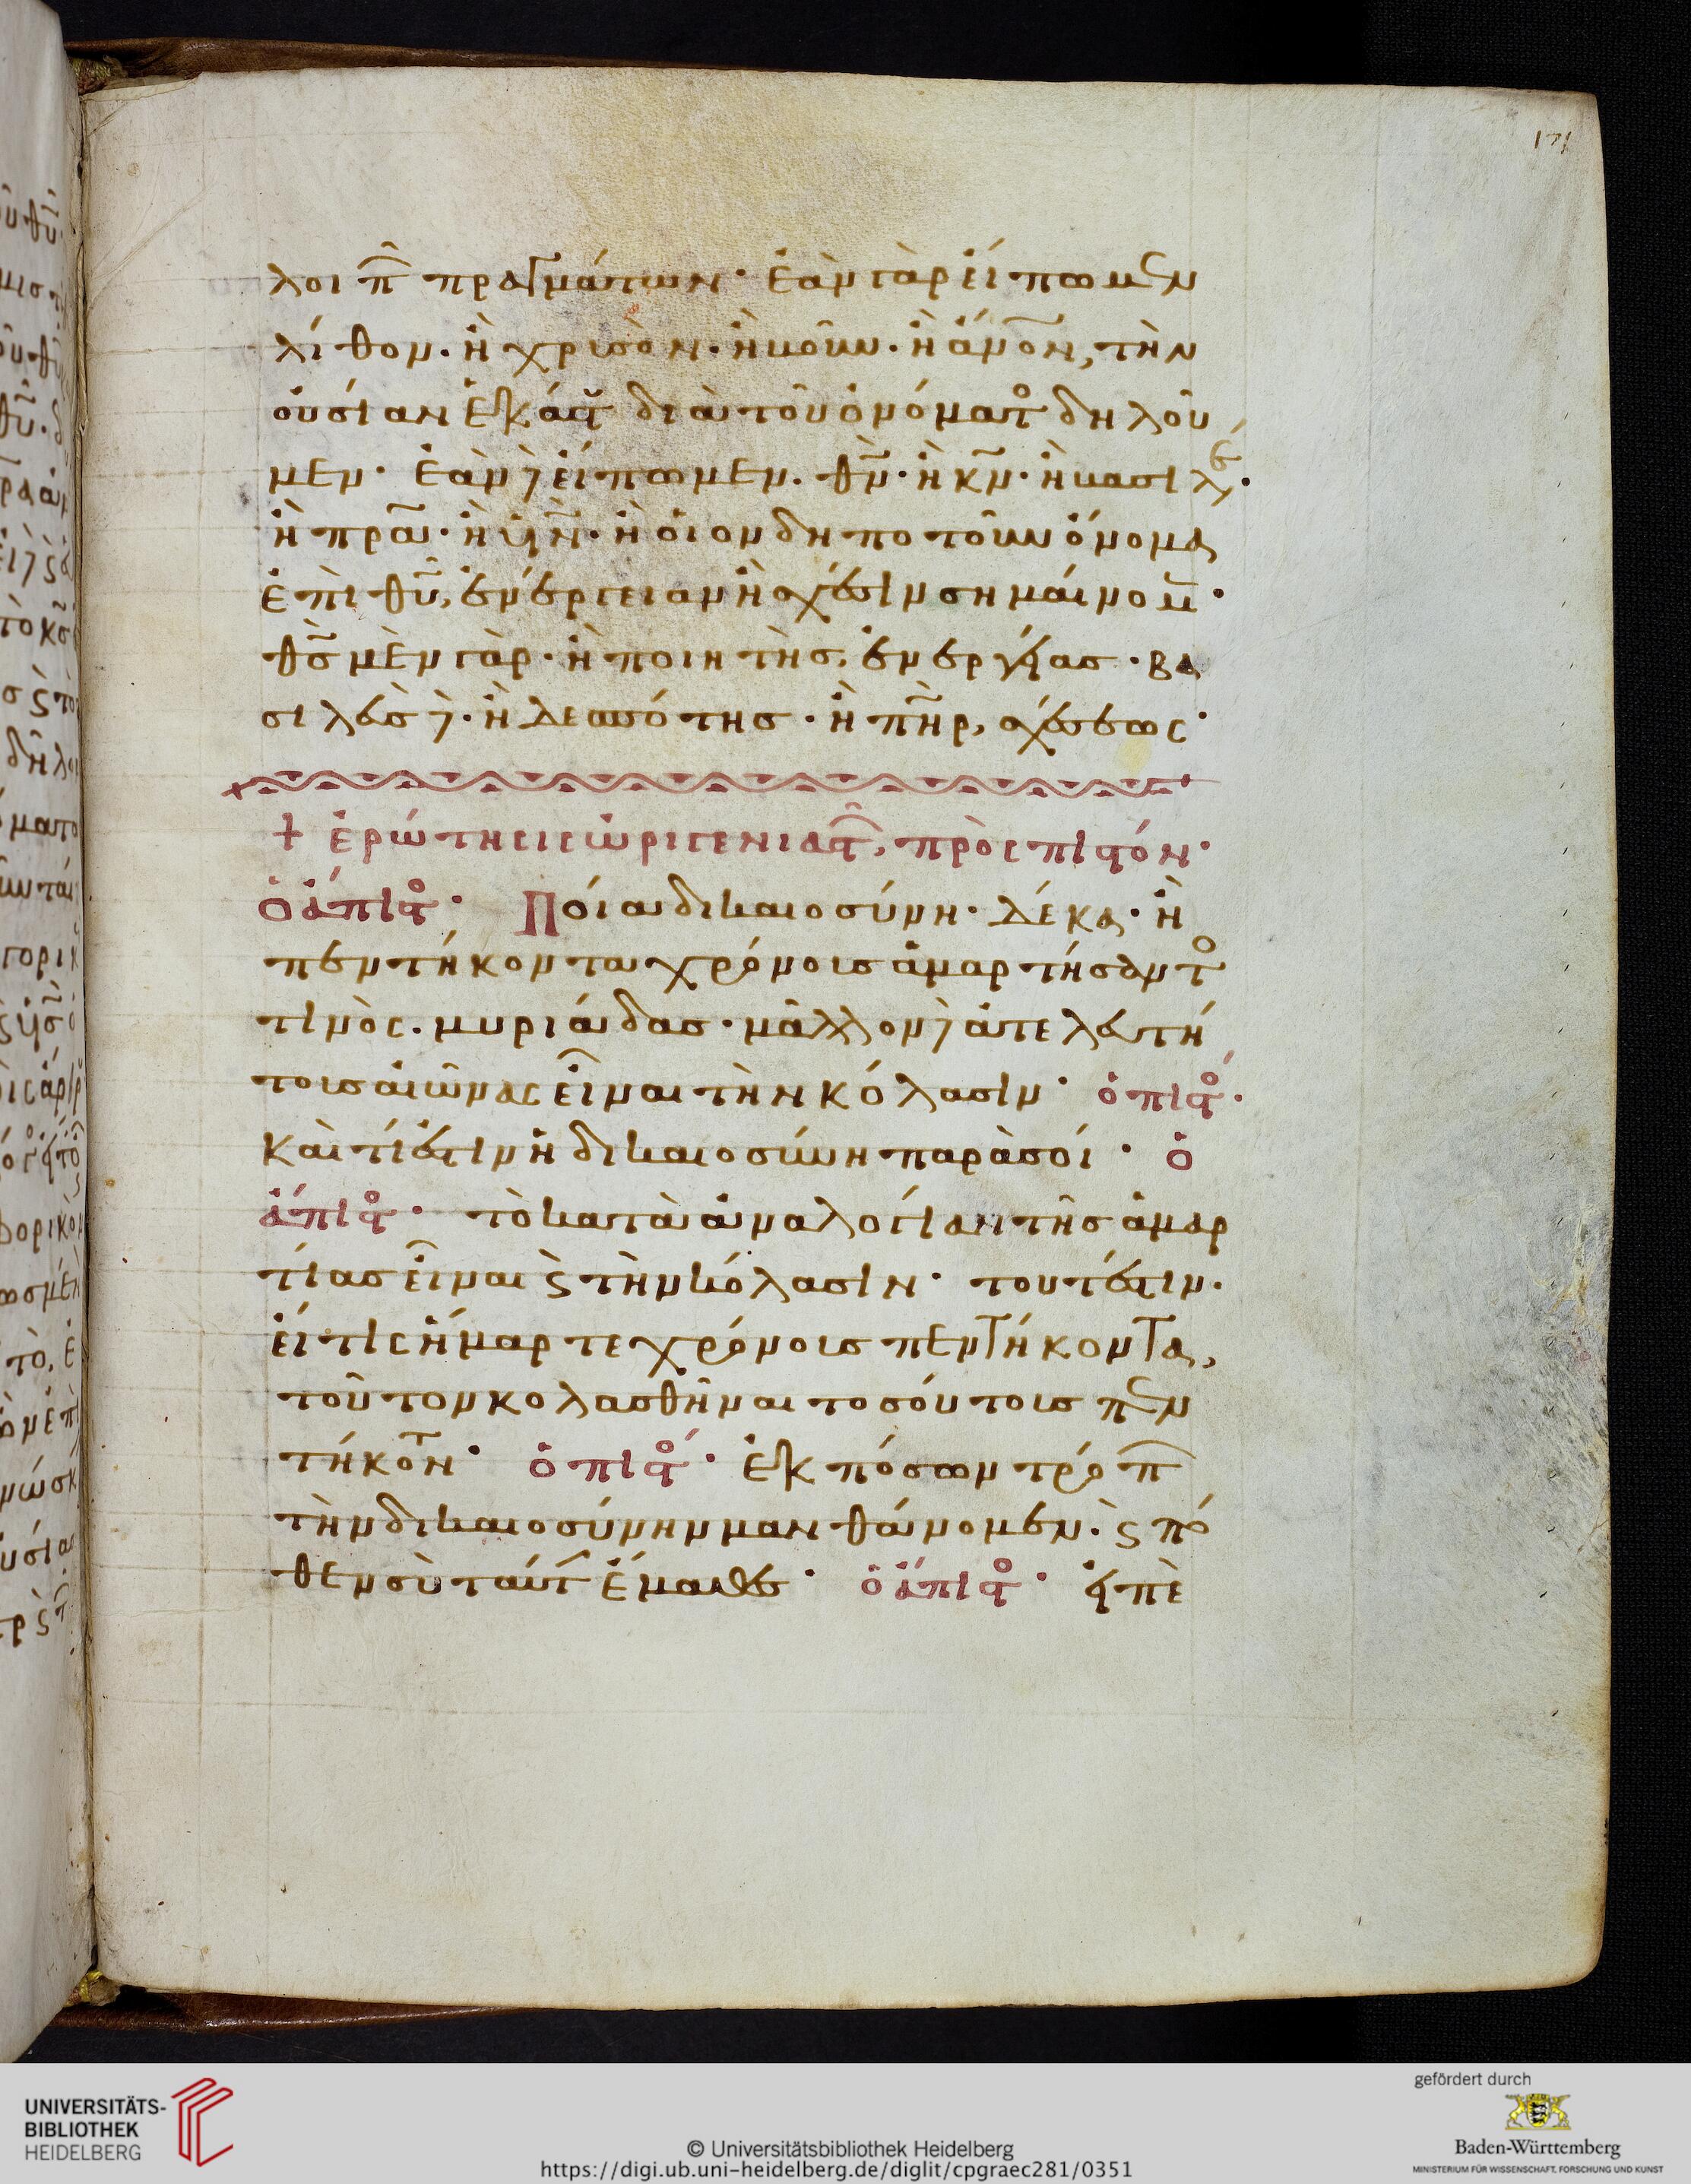 171
λοι π̑ πραγμάτων· ἐὰν γὰρ εἴπωμεν
λίθον· ἢ χρυσὸν· ἢ κύων· ἢ ἄν̅ο̅ν, τὴν
οὐσίαν ἑκάστ διὰ τοῦ ὀνόματο δηλοῦ
μεν· ἐὰν δὲ εἴπωμεν· θ̅ν· ἢ κ̅ν· ἢ βασιλέ·
ἢ π̅ρ̅α· ἢ υ̅ν· ἢ οἱονδηποτοῦν ὄνομα
ἐπὶ θ̅υ, ἐνέργειαν ἢ σχέσιν σημαίνομ·
θ̅ς μὲν γὰρ· ἢ ποιητὴς, ἐνεργείας· βα
σιλεὺς δὲ· ἢ δεσπότης· ἢ π̅η̅ρ, σχέσεως·
+ ἐρώτησις ὠριγενιαστ, πρὸς πιστόν·
ὁ ἄπιστο· Ποία δικαιοσύνη· δέκα· ἢ
πεντήκοντα χρόνοις ἁμαρτήσαντο
τινὸς· μυριάδας· μᾶλλον δὲ ἀτελευτή
τοις αἰῶνας εἶναι τὴν κόλασιν· ὁ πιστο·
καὶ τί ἐστιν ἡ δικαιοσύνη παρὰ σοί· ὁ
ἄπιστο· τὸ κατὰ ἀναλογίαν τῆς ἁμαρ
τίας εἶναι ϛ τὴν κόλασιν· τουτέστιν·
εἴ τις ἥμαρτε χρόνοις πεντήκοντα,
τοῦτον κολασθῆναι τοσούτοις πεν
τήκοντ· ὁ πιστο· ἐκ πόσων τρόπ
τὴν δικαιοσύνην μανθάνομεν· ϛ πό
θεν σὺ ταύτ ἔμαθες· ὁ ἄπιστο· εἰπὲ
UNIVERSITÄTS-
BIBLIOTHEK
HEIDELBERG
© Universitätsbibliothek Heidelberg
https://digi.ub.uni-heidelberg.de/diglit/cpgraec281/0351
gefördert durch
Baden-Württemberg
MINISTERIUM FÜR WISSENSCHAFT, FORSCHUNG UND KUNST